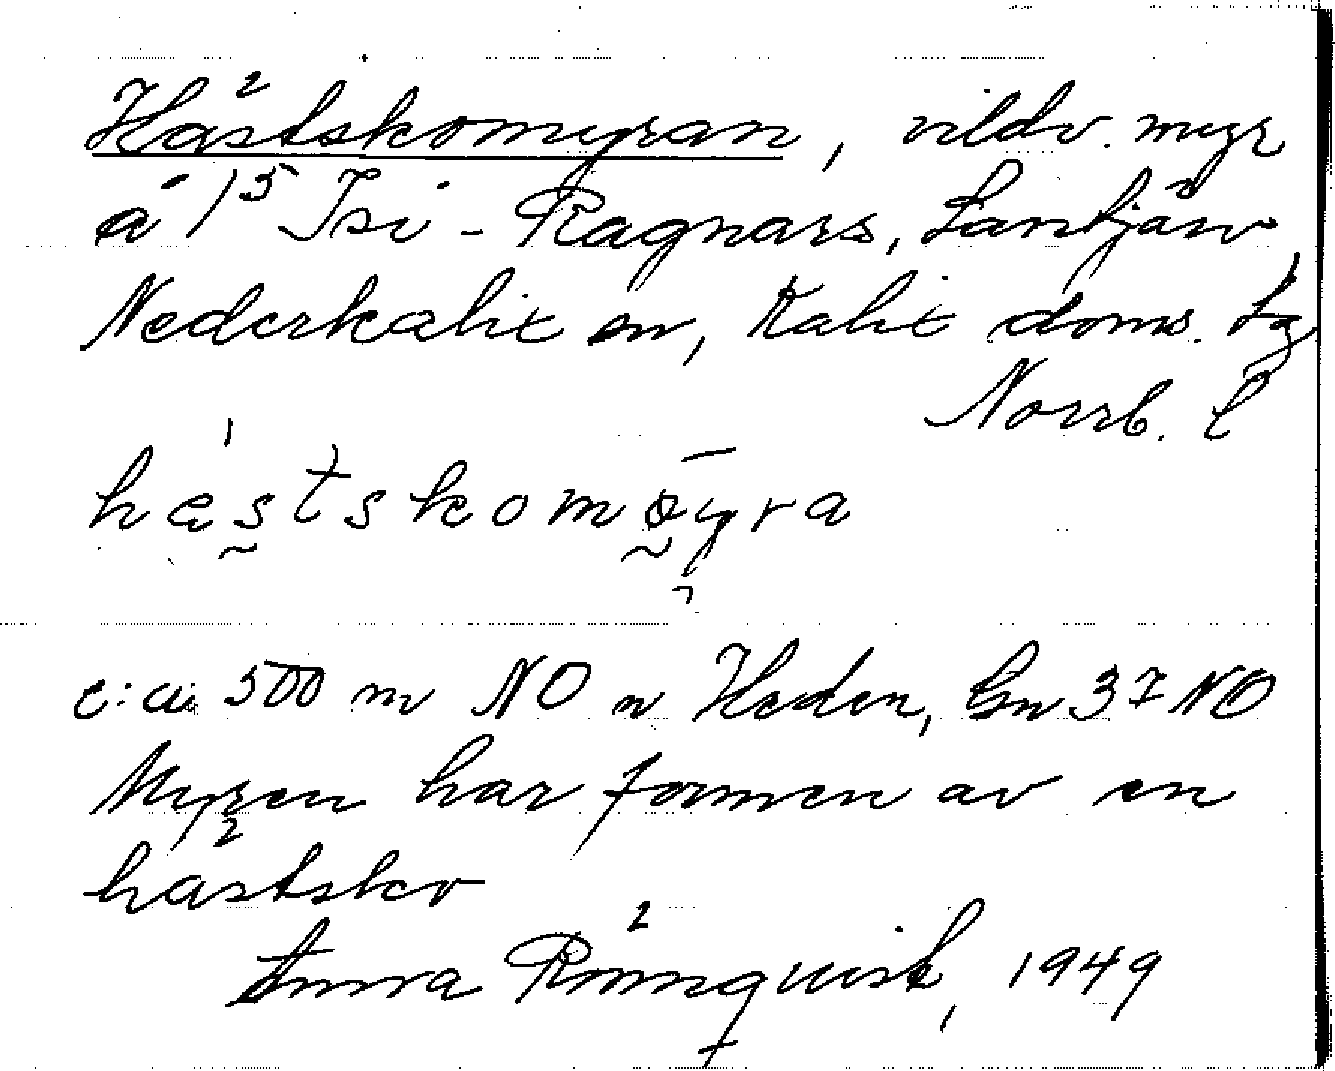 Hästskomyran, vildv. myr
å 1⁵ Isi-Ragnars, Lantjärv
Nederkalix sn, Kalix doms. lg
Norrb. l
hæstskomöyra
c:a 500 m NO n Heden, Gn 37 NO
Myren har formen av en
hästsko
Anna Rönnqvist, 1949